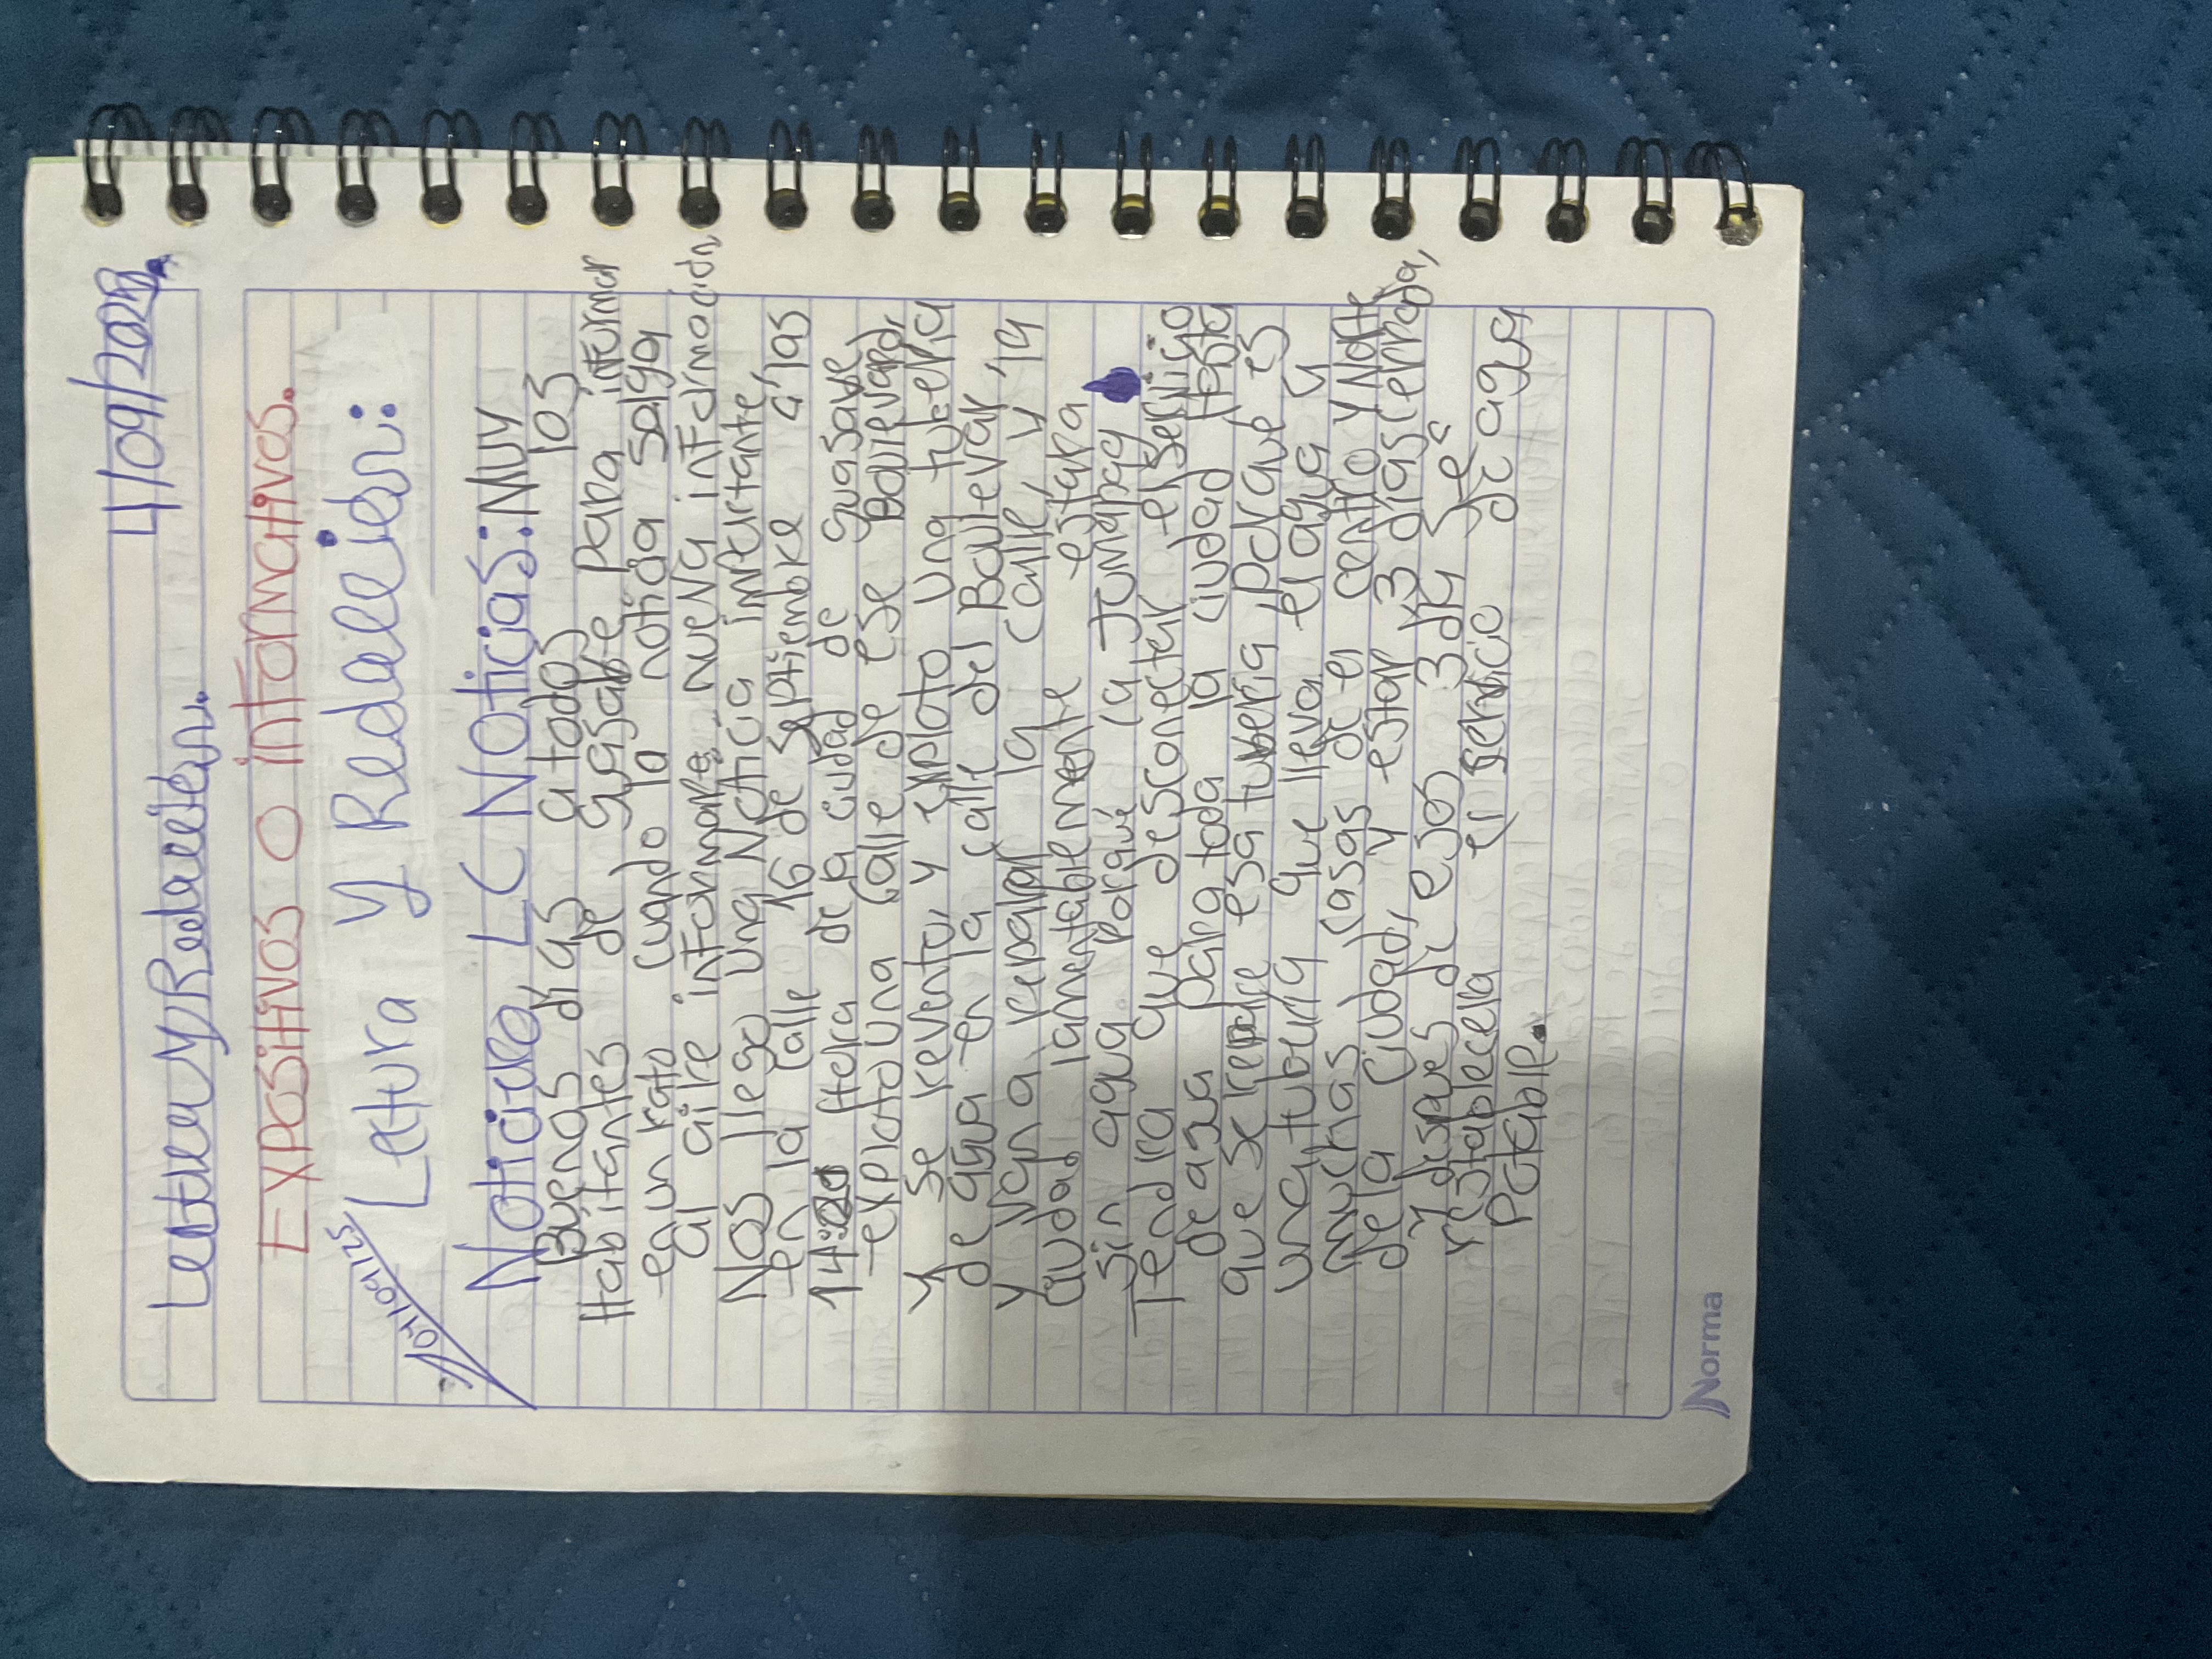 4/09/2025.
Lectura y Redacción.
Expositivos o informativos.
04/09/25
Lectura y Redacción:
Noticiero LC Noticias: Muy
Buenos días a todos los
Habitantes de guasave para informar
en un rato cuando la noticia salga
al aire informare nueva información
Nos llego una Noticia importante,
en la calle 16 de septiembre a las
14:20 Hora de la cudad de guasave
exploto una calle de ese Boulevard,
y se revento, y exploto una tuberia
de agua en la calle del Boulevar, la
y van a reparar la calle, y
ciudad lamentablemente estara
sin agua porqué la Jumapag
Tendra que desconectar el servicio
de agua para toda la ciudad Hasta
que se repare esa tuberia porque es
una tuberia que lleva el agua a
muchas casas de el centro y Norte
de la Ciudad, y estar 3 dias cerrada,
y despues de esos 3 dias se
restablecera el servicio de agua
Potable.
Norma